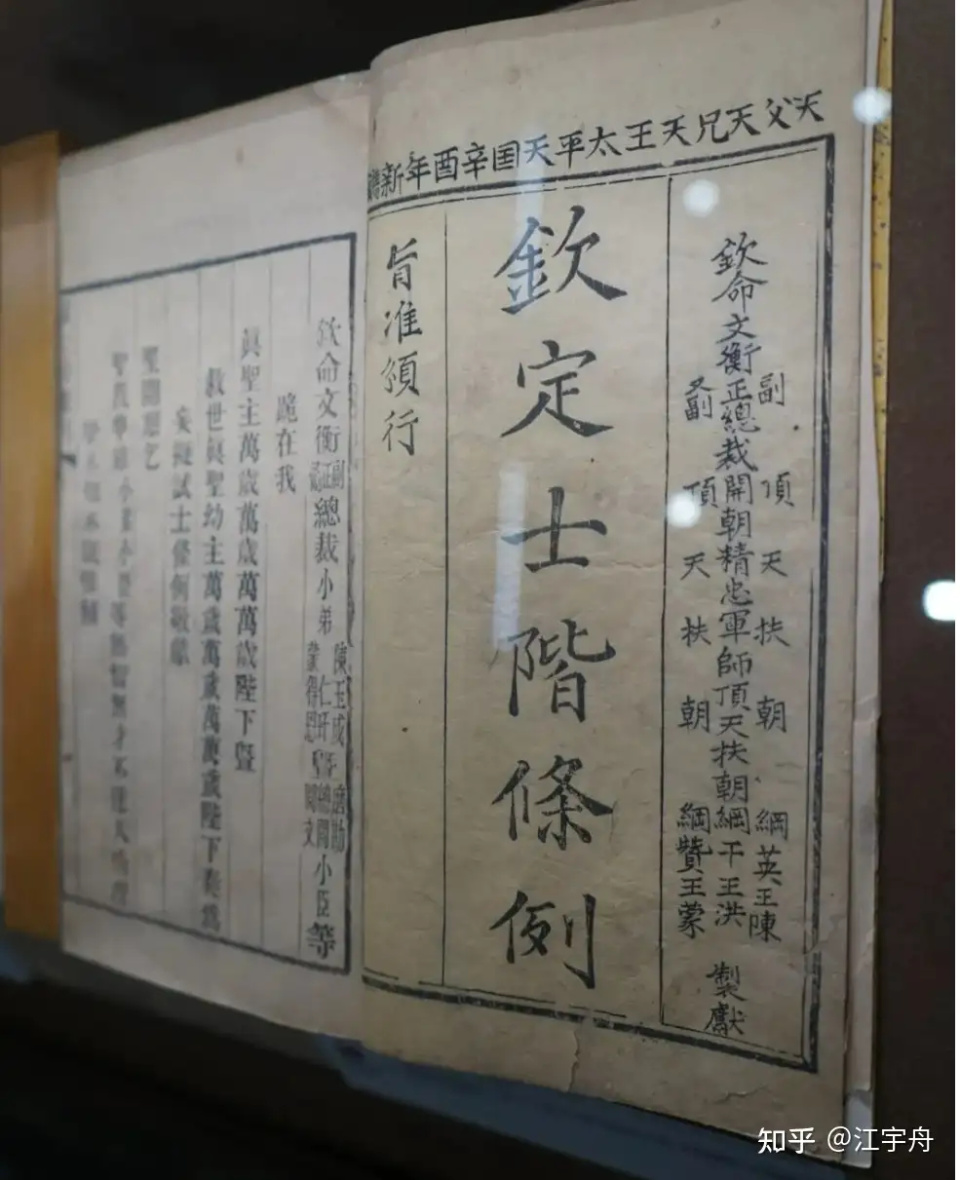 天父天兄天王太平天囯辛酉年新
副頂天扶朝綱英王陳
欽命文衡正總裁開朝精忠軍師頂天扶朝綱干王洪製獻
又副頂天扶朝綱贊王蒙
欽定士階條例
旨准頒行
欽命文衡正副總裁小弟陳玉成仁玕蒙得恩暨小臣等
跪在我
眞聖主萬歲萬歲萬萬歲陛下暨
救世眞聖幼主萬歲萬歲萬萬歲陛下奏爲
擬試士條例敬獻
知乎 @江宇舟